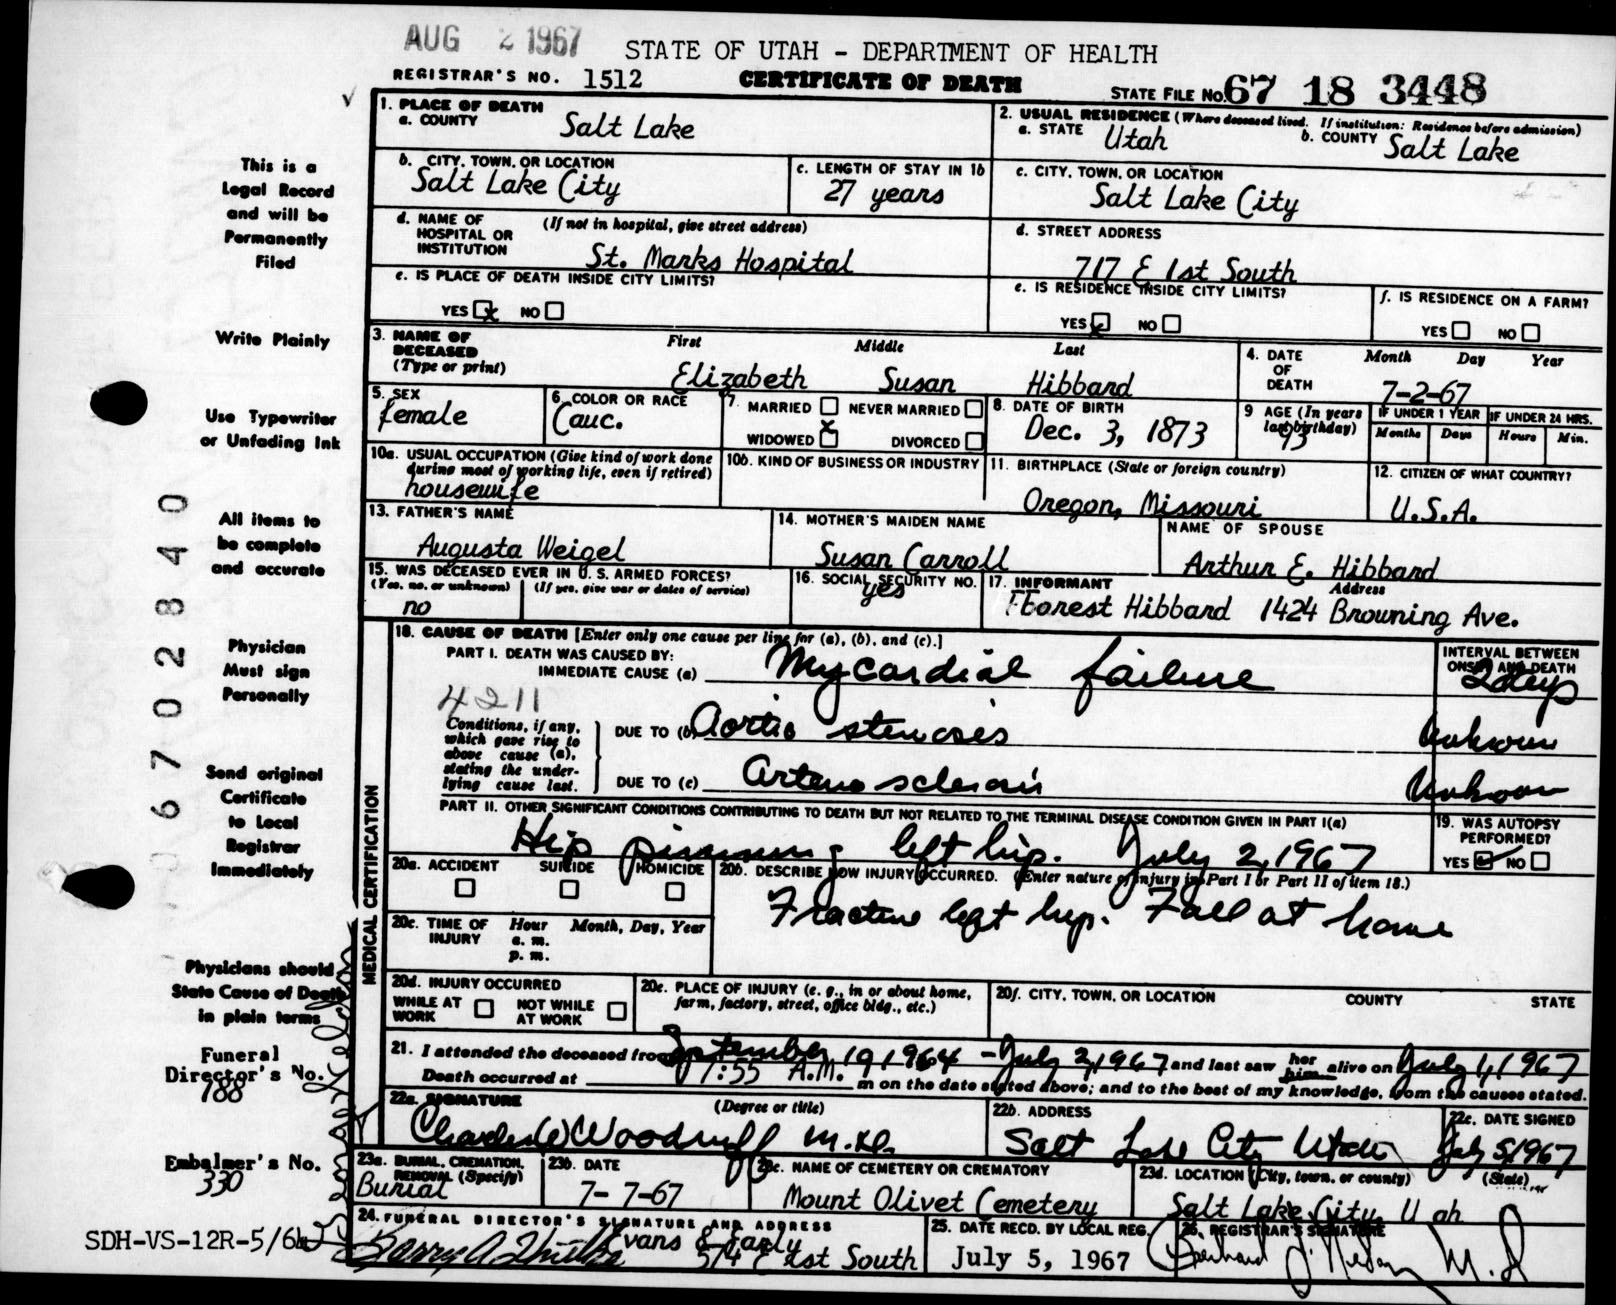 AUG 2 1967
STATE OF UTAH - DEPARTMENT OF HEALTH
REGISTRAR'S NO. 1512
CERTIFICATE OF DEATH
STATE FILE NO. 67 18 3448
This is a
Legal Record
and will be
Permanently
Filed
Write Plainly
Use Typewriter
or Unfading Ink
All items to
be complete
and accurate
Physician
Must sign
Personally
Send original
Certificate
to Local
Registrar
Immediately
Physicians should
State Cause of Death
in plain terms
Funeral
Director's No.
188
Embalmer's No.
330
SDH-VS-12R-5/6
06702840
1. PLACE OF DEATH
a. COUNTY Salt Lake
2. USUAL RESIDENCE (Where deceased lived. If institution: Residence before admission)
a. STATE Utah b. COUNTY Salt Lake
b. CITY, TOWN, OR LOCATION
Salt Lake City
c. LENGTH OF STAY IN 1b
27 years
c. CITY, TOWN, OR LOCATION
Salt Lake City
d. NAME OF HOSPITAL OR INSTITUTION (If not in hospital, give street address)
St. Marks Hospital
d. STREET ADDRESS
717 E 1st South
e. IS PLACE OF DEATH INSIDE CITY LIMITS?
YES x NO
e. IS RESIDENCE INSIDE CITY LIMITS?
YES NO
f. IS RESIDENCE ON A FARM?
YES NO
3. NAME OF DECEASED (Type or print)
First Middle Last
Elizabeth Susan Hibbard
4. DATE OF DEATH
Month Day Year
7-2-67
5. SEX
female
6. COLOR OR RACE
Cauc.
7. MARRIED NEVER MARRIED
WIDOWED x DIVORCED
8. DATE OF BIRTH
Dec. 3, 1873
9 AGE (In years last birthday)
93
IF UNDER 1 YEAR IF UNDER 24 HRS.
Months Days Hours Min.
10a. USUAL OCCUPATION (Give kind of work done during most of working life, even if retired)
housewife
10b. KIND OF BUSINESS OR INDUSTRY
11. BIRTHPLACE (State or foreign country)
Oregon, Missouri
12. CITIZEN OF WHAT COUNTRY?
U.S.A.
13. FATHER'S NAME
Augusta Weigel
14. MOTHER'S MAIDEN NAME
Susan Carroll
NAME OF SPOUSE
Arthur E. Hibbard
15. WAS DECEASED EVER IN U. S. ARMED FORCES?
(Yes, no, or unknown) (If yes, give war or dates of service)
no
16. SOCIAL SECURITY NO.
yes
17. INFORMANT Address
Forest Hibbard 1424 Browning Ave.
MEDICAL CERTIFICATION
18. CAUSE OF DEATH [Enter only one cause per line for (a), (b), and (c).]
PART I. DEATH WAS CAUSED BY:
IMMEDIATE CAUSE (a) Mycardial failure
INTERVAL BETWEEN ONSET AND DEATH
2 days
4211
Conditions, if any, which gave rise to above cause (a), stating the underlying cause last.
DUE TO (b) Aortic stenosis Unknown
DUE TO (c) Arteriosclerosis Unknown
PART II. OTHER SIGNIFICANT CONDITIONS CONTRIBUTING TO DEATH BUT NOT RELATED TO THE TERMINAL DISEASE CONDITION GIVEN IN PART I(a)
Hip pinning left hip. July 2, 1967
19. WAS AUTOPSY PERFORMED?
YES NO
20a. ACCIDENT SUICIDE HOMICIDE
20b. DESCRIBE HOW INJURY OCCURRED. (Enter nature of injury in Part I or Part II of item 18.)
Fracture left hip. Fall at home
20c. TIME OF INJURY Hour Month, Day, Year
a. m.
p. m.
20d. INJURY OCCURRED
WHILE AT WORK NOT WHILE AT WORK
20e. PLACE OF INJURY (e. g., in or about home, farm, factory, street, office bldg., etc.)
20f. CITY, TOWN, OR LOCATION COUNTY STATE
21. I attended the deceased from September 19, 1964 - July 2, 1967 and last saw her him alive on July 1, 1967
Death occurred at 7:55 A.M. m on the date stated above; and to the best of my knowledge, from the causes stated.
22a. SIGNATURE (Degree or title)
Charles W Woodruff M.D.
22b. ADDRESS
Salt Lake City Utah
22c. DATE SIGNED
July 5, 1967
23a. BURIAL, CREMATION, REMOVAL (Specify)
Burial
23b. DATE
7-7-67
23c. NAME OF CEMETERY OR CREMATORY
Mount Olivet Cemetery
23d. LOCATION (City, town, or county) (State)
Salt Lake City, U ah
24. FUNERAL DIRECTOR'S SIGNATURE AND ADDRESS
Evans & Early
574 E 1st South
25. DATE RECD. BY LOCAL REG.
July 5, 1967
26. REGISTRAR'S SIGNATURE
M.D